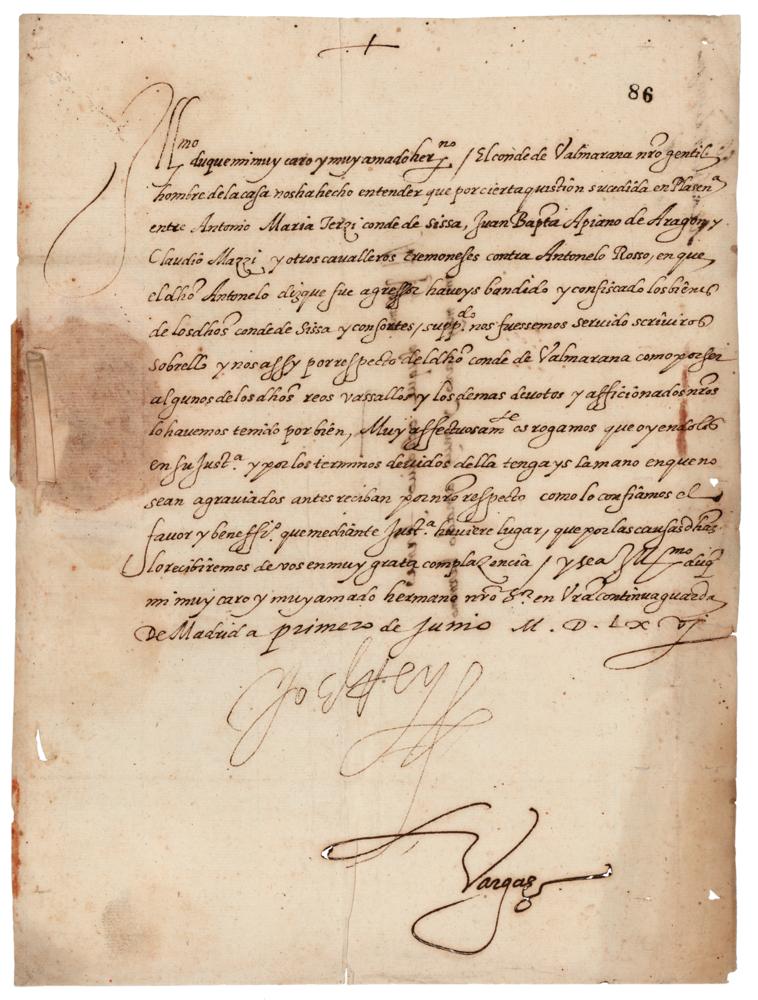 86
Ill.mo duque mi muy caro y muy amado her.no / El conde de Valmarana nr̃o gentil
hombre de la casa nos ha hecho entender que por cierta quistion sucedida en Plasen.a
entre Antonio Maria Terzi conde de Sissa, Juan Bap̃ta Apiano de Aragon, y
Claudio Mazzi y otros cavalleros cremoneses contra Antonelo Rosso, en que
el dh̃o Antonelo dizque fue agressor haveys bandido y confiscado los biẽnes
de los dh̃os conde de Sissa y consortes / supp.do nos fuessemos servido screviros
sobrello y nos assy por respecto del dh̃o conde de Valmarana como por ser
algunos de los dh̃os reos vassallos y los demas devotos y afficionados nr̃os
lo havemos tenido por biẽn, Muy affectuosam.te os rogamos que oyendolos
en su Just.a y por los terminos devidos della tengays la mano en que no
sean agraviados antes reciban por nr̃o respecto como lo confiamos el
favor y beneffi.o que mediante Just.a huviere lugar, que por las causas dh̃as
lo recibiremos de vos en muy grata complazencia / y sea Ill.mo duq̃
mi muy caro y muy amado hermano nr̃o S.r en Vr̃a continua guarda
De Madrid a primero de Junio M. D. LX Vj
Yo el Rey
Vargas